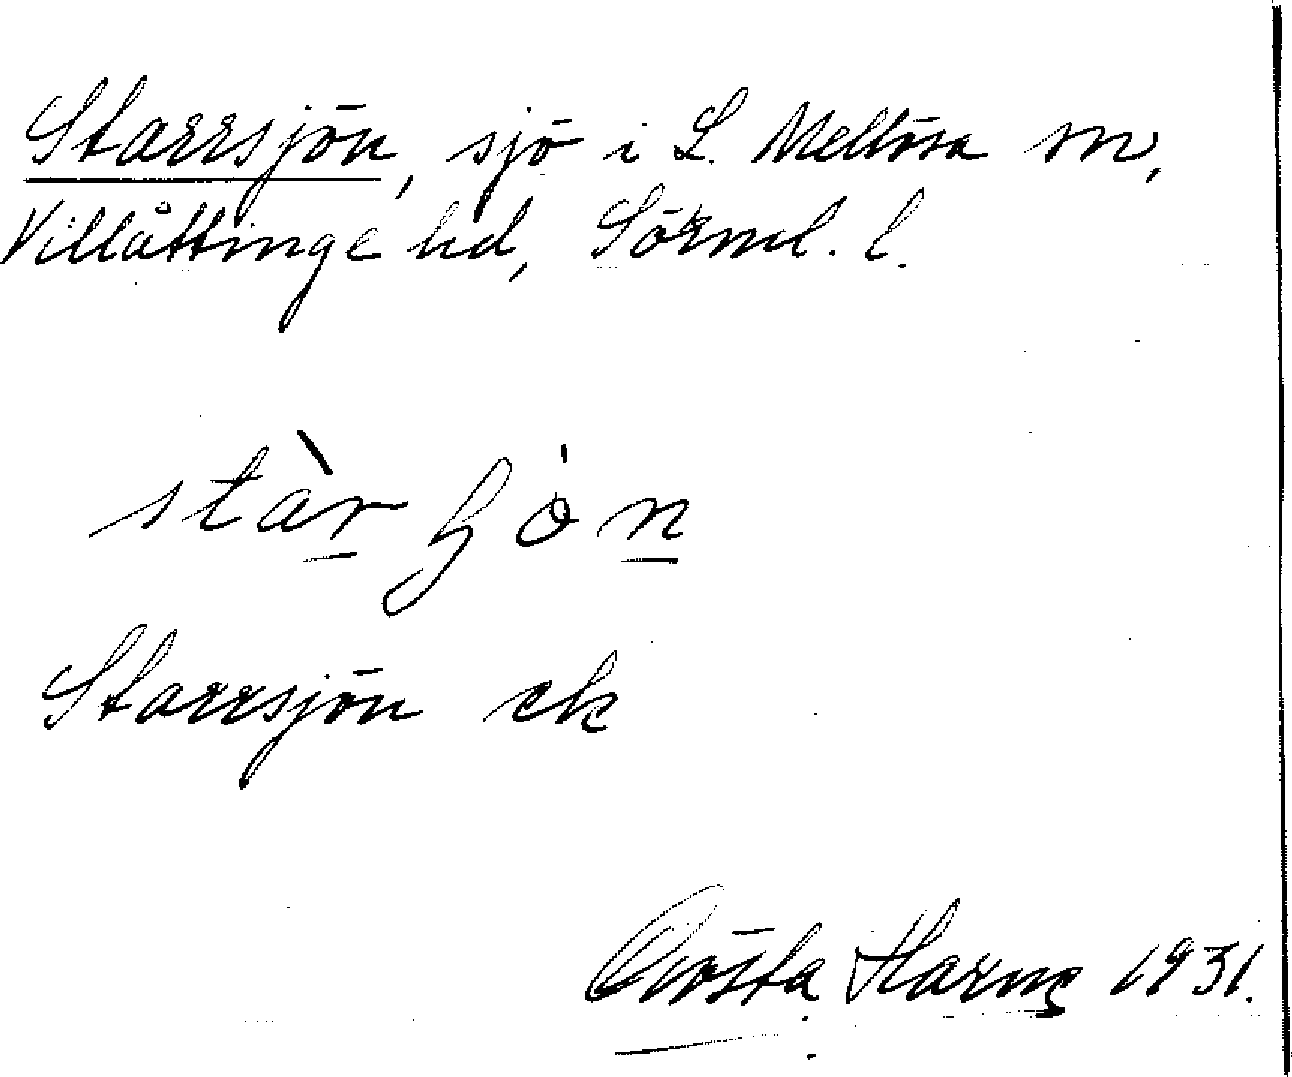 Starrsjön, sjö i L. Mellösa sn,
Villåttinge hd, Sörml. l.
Starrsjön ek
Gösta Harns 1931.